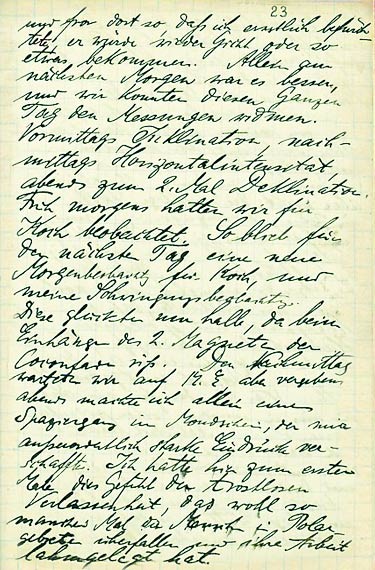 23
und fror dort so, daß ich ernstlich befürch-
tete, er würde wieder Gicht oder so
etwas bekommen. Allein am
nächsten Morgen war es besser,
und wir konnten diesen ganzen
Tag den Messungen widmen.
Vormittags Inklination, nach-
mittags Horizontalintensität,
abends zum 2. Mal Deklination.
Früh morgens hatten wir für
Koch beobachtet. So blieb für
den nächsten Tag eine neue
Morgenbeobachtg für Koch, und
meine Schwingungsbeobachtg.
Diese glückten nun halb, da beim
Einhängen des 2. Magneten der
Coconfaden riß. Den Nachmittag
warteten wir auf M. E. aber vergebens
abends machte ich allein einen
Spaziergang im Mondschein, der mir
außerordentlich starke Eindrücke ver-
schaffte. Ich hatte hier zum ersten
Male dies Gefühl der trostlosen
Verlassenheit, das wohl so
manches Mal die Mannsch. i. Polar
gebieten überfallen und ihre Arbeit
lahmgelegt hat.